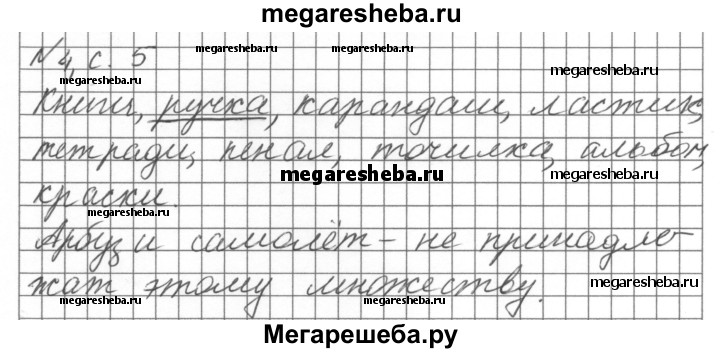 megaresheba.ru
№4, с. 5
megaresheba.ru
megaresheba.ru
megaresheba.ru
Книги, ручка, карандаш, ластик,
megaresheba.ru
megaresheba.ru
тетради, пенал, точилка, альбом,
megaresheba.ru
краски.
megaresheba.ru
megaresheba.ru
Арбуз и самолёт – не принадле-
жат этому множеству.
megaresheba.ru
megaresheba.ru
megaresheba.ru
Мегарешеба.ру